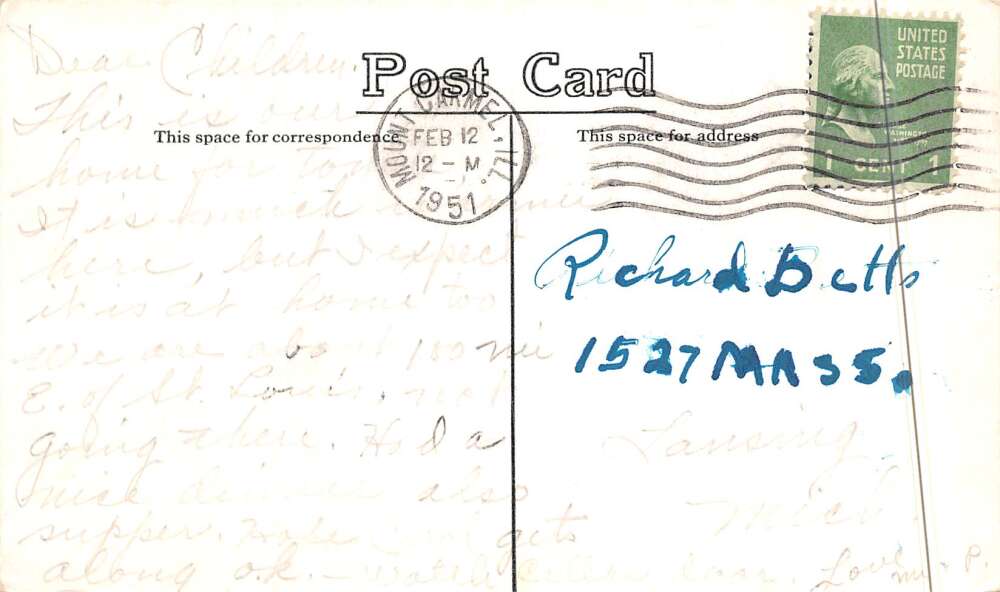 Post Card
This space for correspondence
This space for address
UNITED
STATES
POSTAGE
1 CENT 1
MOUNT CARMEL, ILL.
FEB 12
12 - M
1951
Dear Children,
This is our
home for
It is
here, but I expect
it is at home too
We are about 100 mi
E. of St. Louis, not
going there. Had a
nice dinner also
supper. gets
along o.k. - Love
Richard Betts
1527 MASS.
Lansing,
Mich.